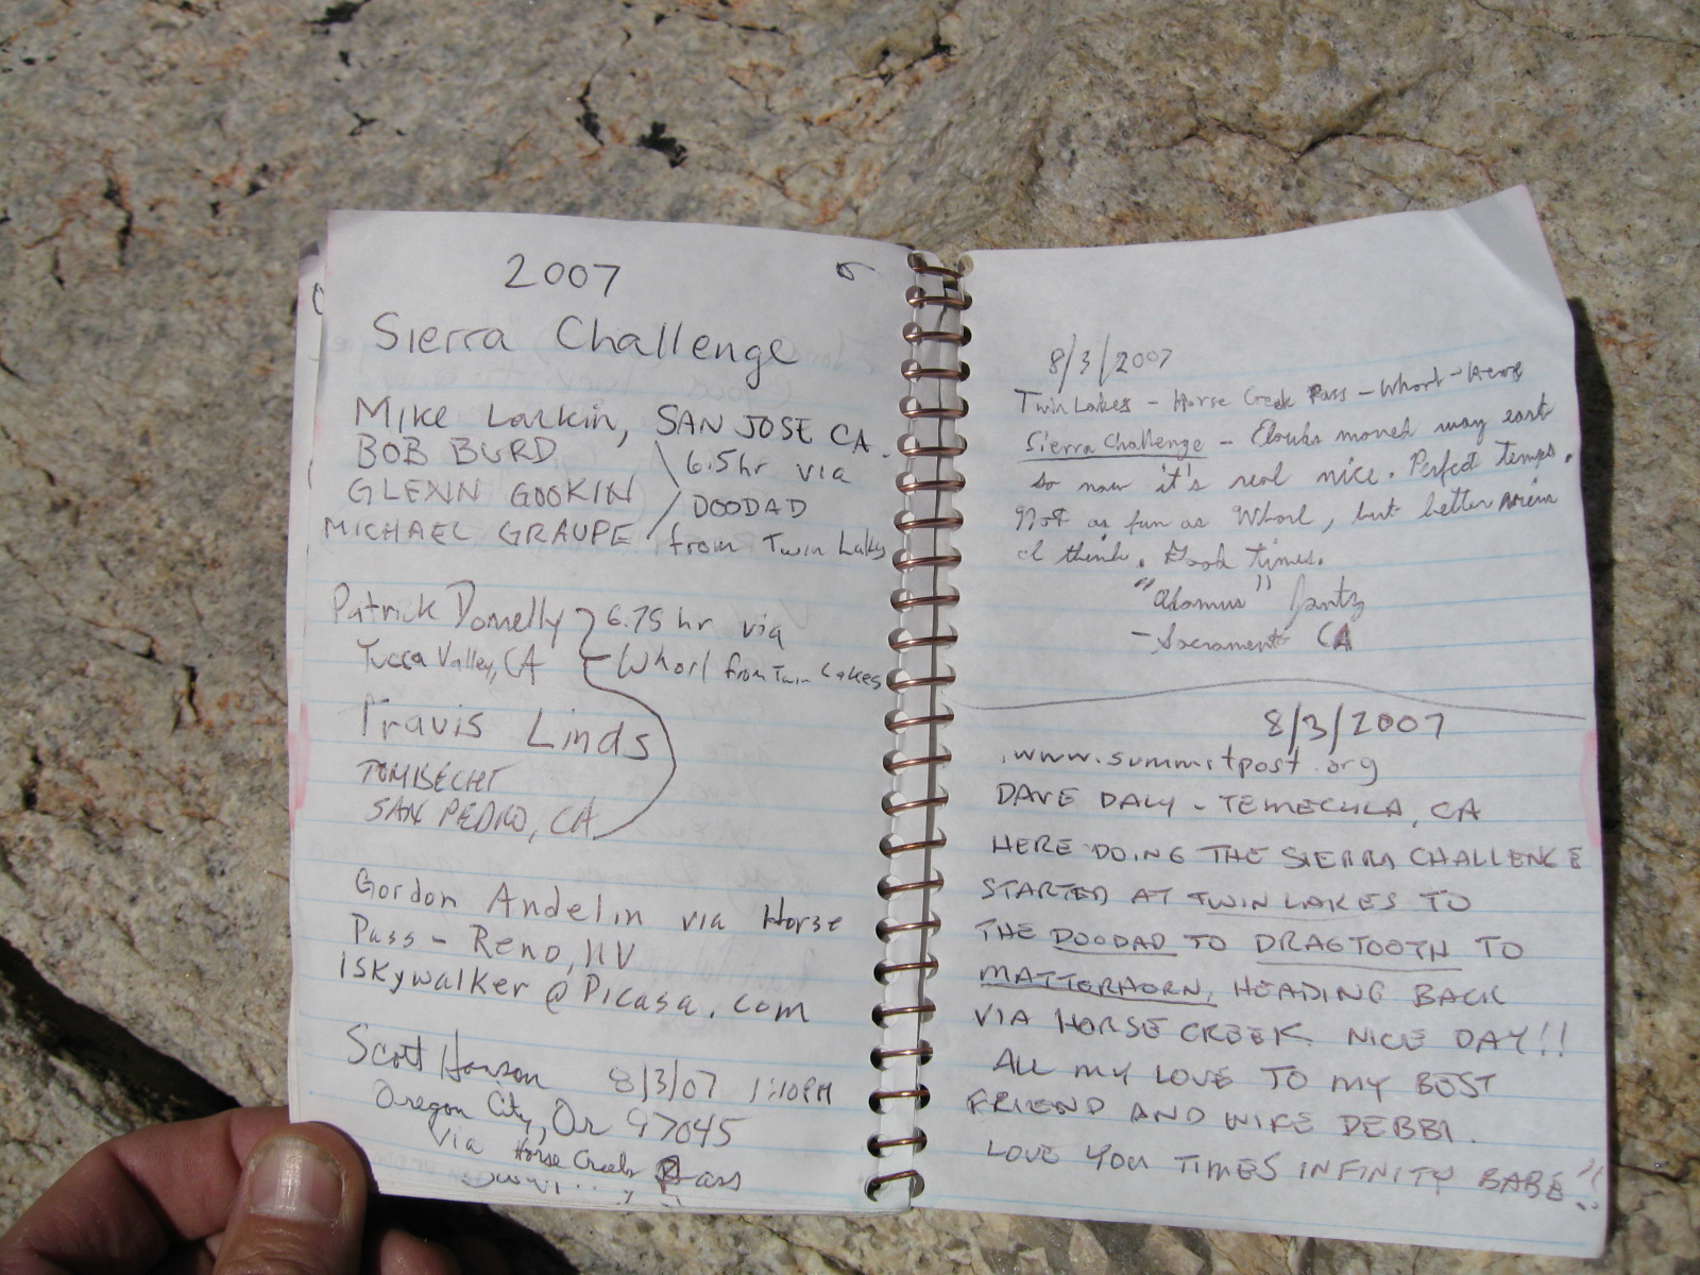 2007
Sierra Challenge
Mike Larkin, SAN JOSE CA.
BOB BURD
GLENN GOOKIN
MICHAEL GRAUPE
6.5hr via
DOODAD
from Twin Lakes
Patrick Donnelly
Yucca Valley, CA
6.75 hr via
Whorl from Twin Lakes
Travis Linds
TOM BECHT
SAN PEDRO, CA
Gordon Andelin via Horse
Pass - Reno, NV
1Skywalker@Picasa.com
Scott Hanson 8/3/07 1:10PM
Oregon City, Or 97045
via Horse Creek Pass
8/3/2007
Twin Lakes - Horse Creek Pass - Whorl - Here
Sierra Challenge - Clouds moved way east
so now it's real nice. Perfect temps.
Not as fun as Whorl, but better views
I think. Good times.
"Adamus" Jantz
- Sacramento CA
8/3/2007
www.summitpost.org
DAVE DALY - TEMECULA, CA
HERE DOING THE SIERRA CHALLENGE
STARTED AT TWIN LAKES TO
THE DOODAD TO DRAGTOOTH TO
MATTERHORN, HEADING BACK
VIA HORSE CREEK. NICE DAY!!
ALL MY LOVE TO MY BEST
FRIEND AND WIFE DEBBI.
LOVE YOU TIMES INFINITY BABE!!